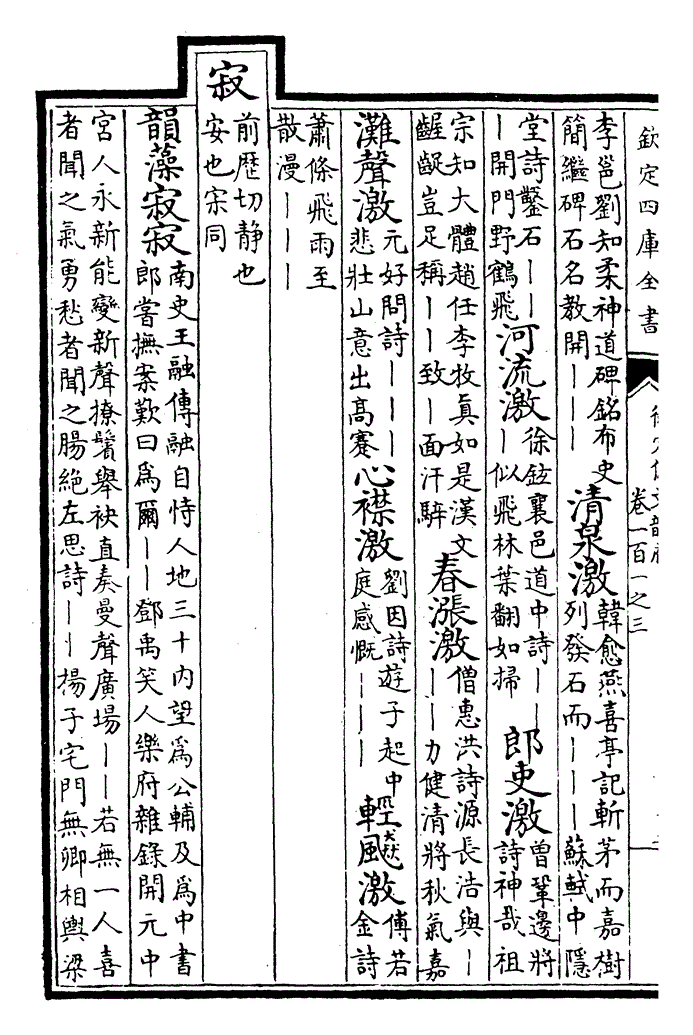 欽定四庫全書
卷一百一之三
李邕劉知柔神道碑銘布史
簡繼碑石名教開丨丨丨
清泉激
韓愈燕喜亭記斬茅而嘉樹
列發石而丨丨丨蘇軾中隱
堂詩鑿石丨丨
丨開門野鶴飛
河流激
徐鉉襄邑道中詩丨丨
丨似飛林葉翻如掃
郎吏激
曾鞏邊將
詩神哉祖
宗知大體趙任李牧真如是漢文
齷齪豈足稱丨丨致丨面汗騂
春漲激
僧惠洪詩源長浩與丨
丨丨力健清將秋氣嘉
灘聲激
元好問詩丨丨丨
悲壯山意出高蹇
心襟激
劉因詩遊子起中
庭感慨丨丨丨
輕飇激
傅若
金詩
蕭條飛雨至
散漫丨丨丨
寂
前歴切静也
安也宋同
韻藻寂寂
南史王融傳融自恃人地三十内望爲公輔及爲中書
郎嘗撫案歎曰爲爾丨丨鄧禹笑人樂府雜錄開元中
宮人永新能變新聲撩鬢舉袂直奏曼聲廣場丨丨若無一人喜
者聞之氣勇愁者聞之腸絶左思詩丨丨揚子宅門無卿相輿梁